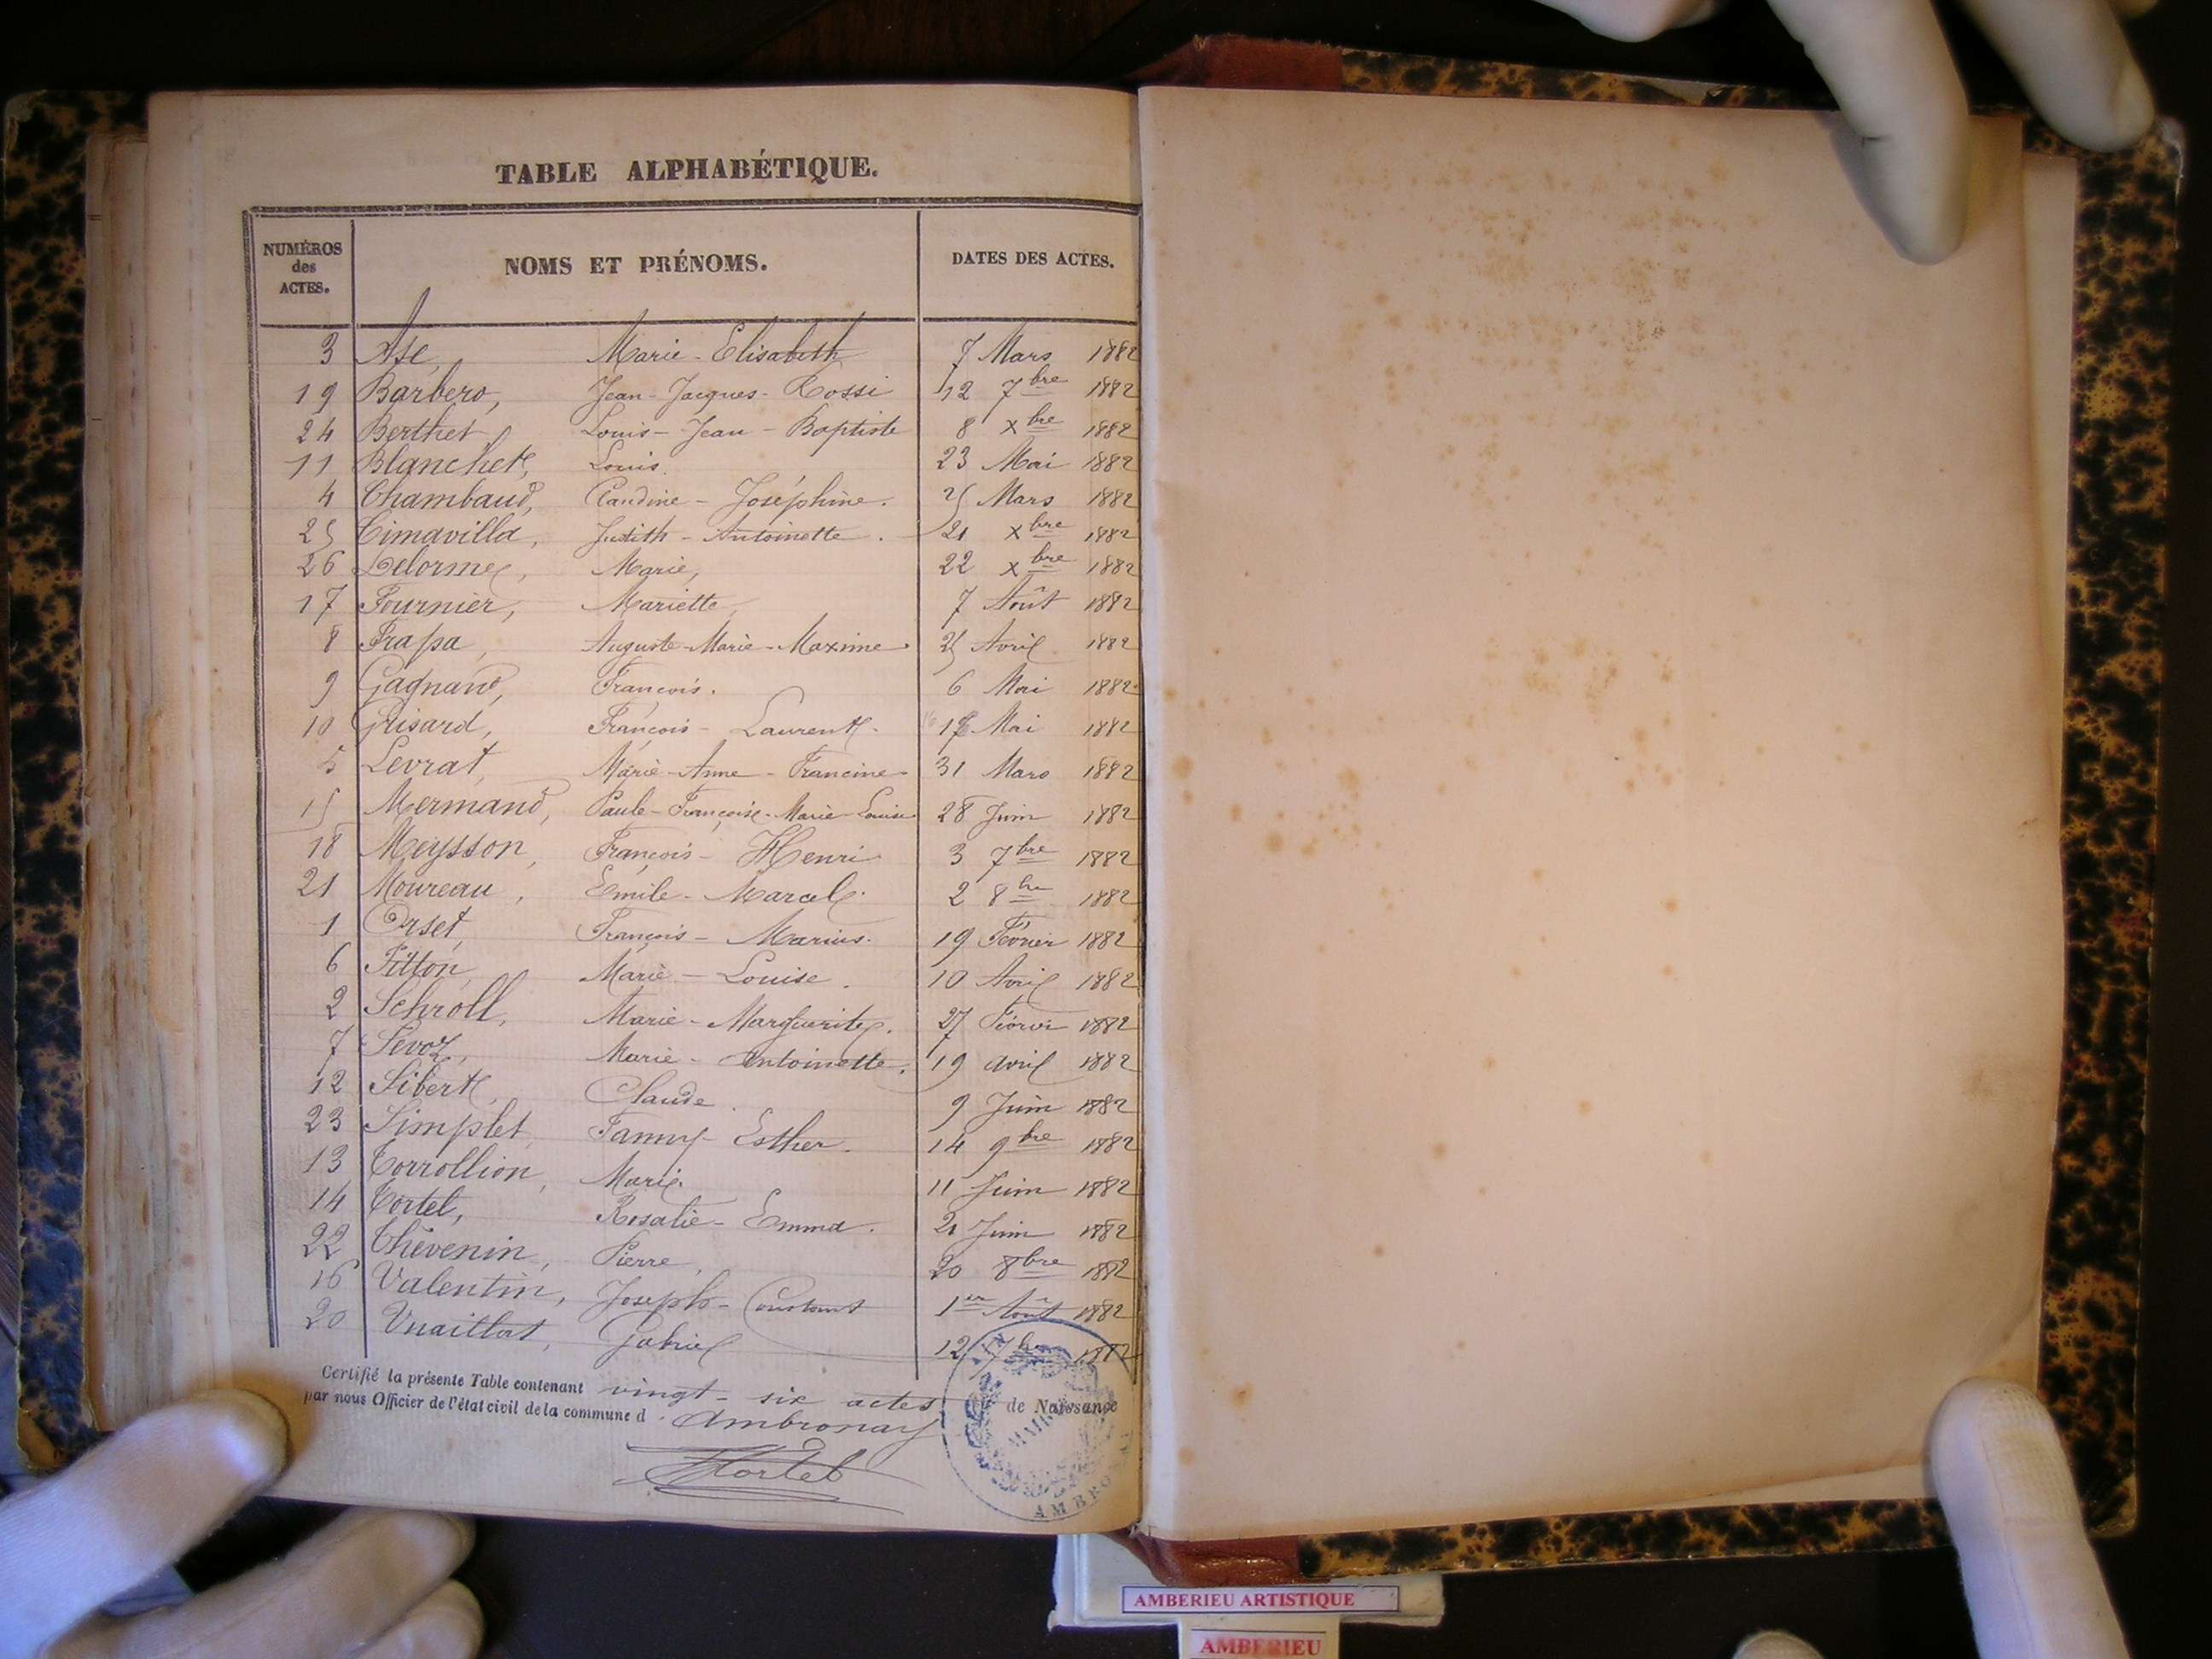 TABLE ALPHABÉTIQUE.
NUMÉROS des ACTES. NOMS ET PRÉNOMS. DATES DES ACTES.
3 Marie-Elisabeth 7 Mars 1882
19 Barbero, Jean-Jacques-Rossi 12 7bre 1882
24 Berthet Louis-Jean-Baptiste 8 Xbre 1882
11 Blanchet, Louis. 23 Mai 1882
4 Chambaud, Claudine-Joséphine. 25 Mars 1882
25 Cimavilla, Judith-Antoinette. 21 Xbre 1882
26 Delorme, Marie, 22 Xbre 1882
17 Fournier, Mariette, 7 Août 1882
8 Frapa, Auguste-Marie-Maxime 25 Avril 1882
9 Gagnand, François. 6 Mai 1882
10 Grisard, François-Laurent. Mai 1882
5 Levrat, Marie-Anne-Francine 31 Mars 1882
15 Mermand, Paule-Françoise-Marie-Louise 28 Juin 1882
18 Meysson, François-Henri 3 7bre 1882
21 Moureau, Emile-Marcel. 2 8bre 1882
1 Orset, François-Marius. 19 Février 1882
6 Pitton, Marie-Louise. 10 Avril 1882
2 Schroll, Marie-Marguerite. 27 Février 1882
7 Sevoz, Marie-Antoinette. 19 avril 1882
12 Sibert, Claude. 9 Juin 1882
23 Simplet, Fanny-Esther. 14 9bre 1882
13 Corrollion, Marie. 11 Juin 1882
14 Tortel, Rosalie-Emma. 21 Juin 1882
22 Thévenin, Pierre, 20 8bre 1882
16 Valentin, Joseph-Constant 1er Août 1882
20 Vuaillat, Gabriel 12 7bre 1882
Certifié la présente Table contenant vingt-six actes de Naissance
par nous Officier de l'état civil de la commune d'Ambronay
Tortel
MAIRIE
AMBRONAY
AMBERIEU ARTISTIQUE
AMBERIEU